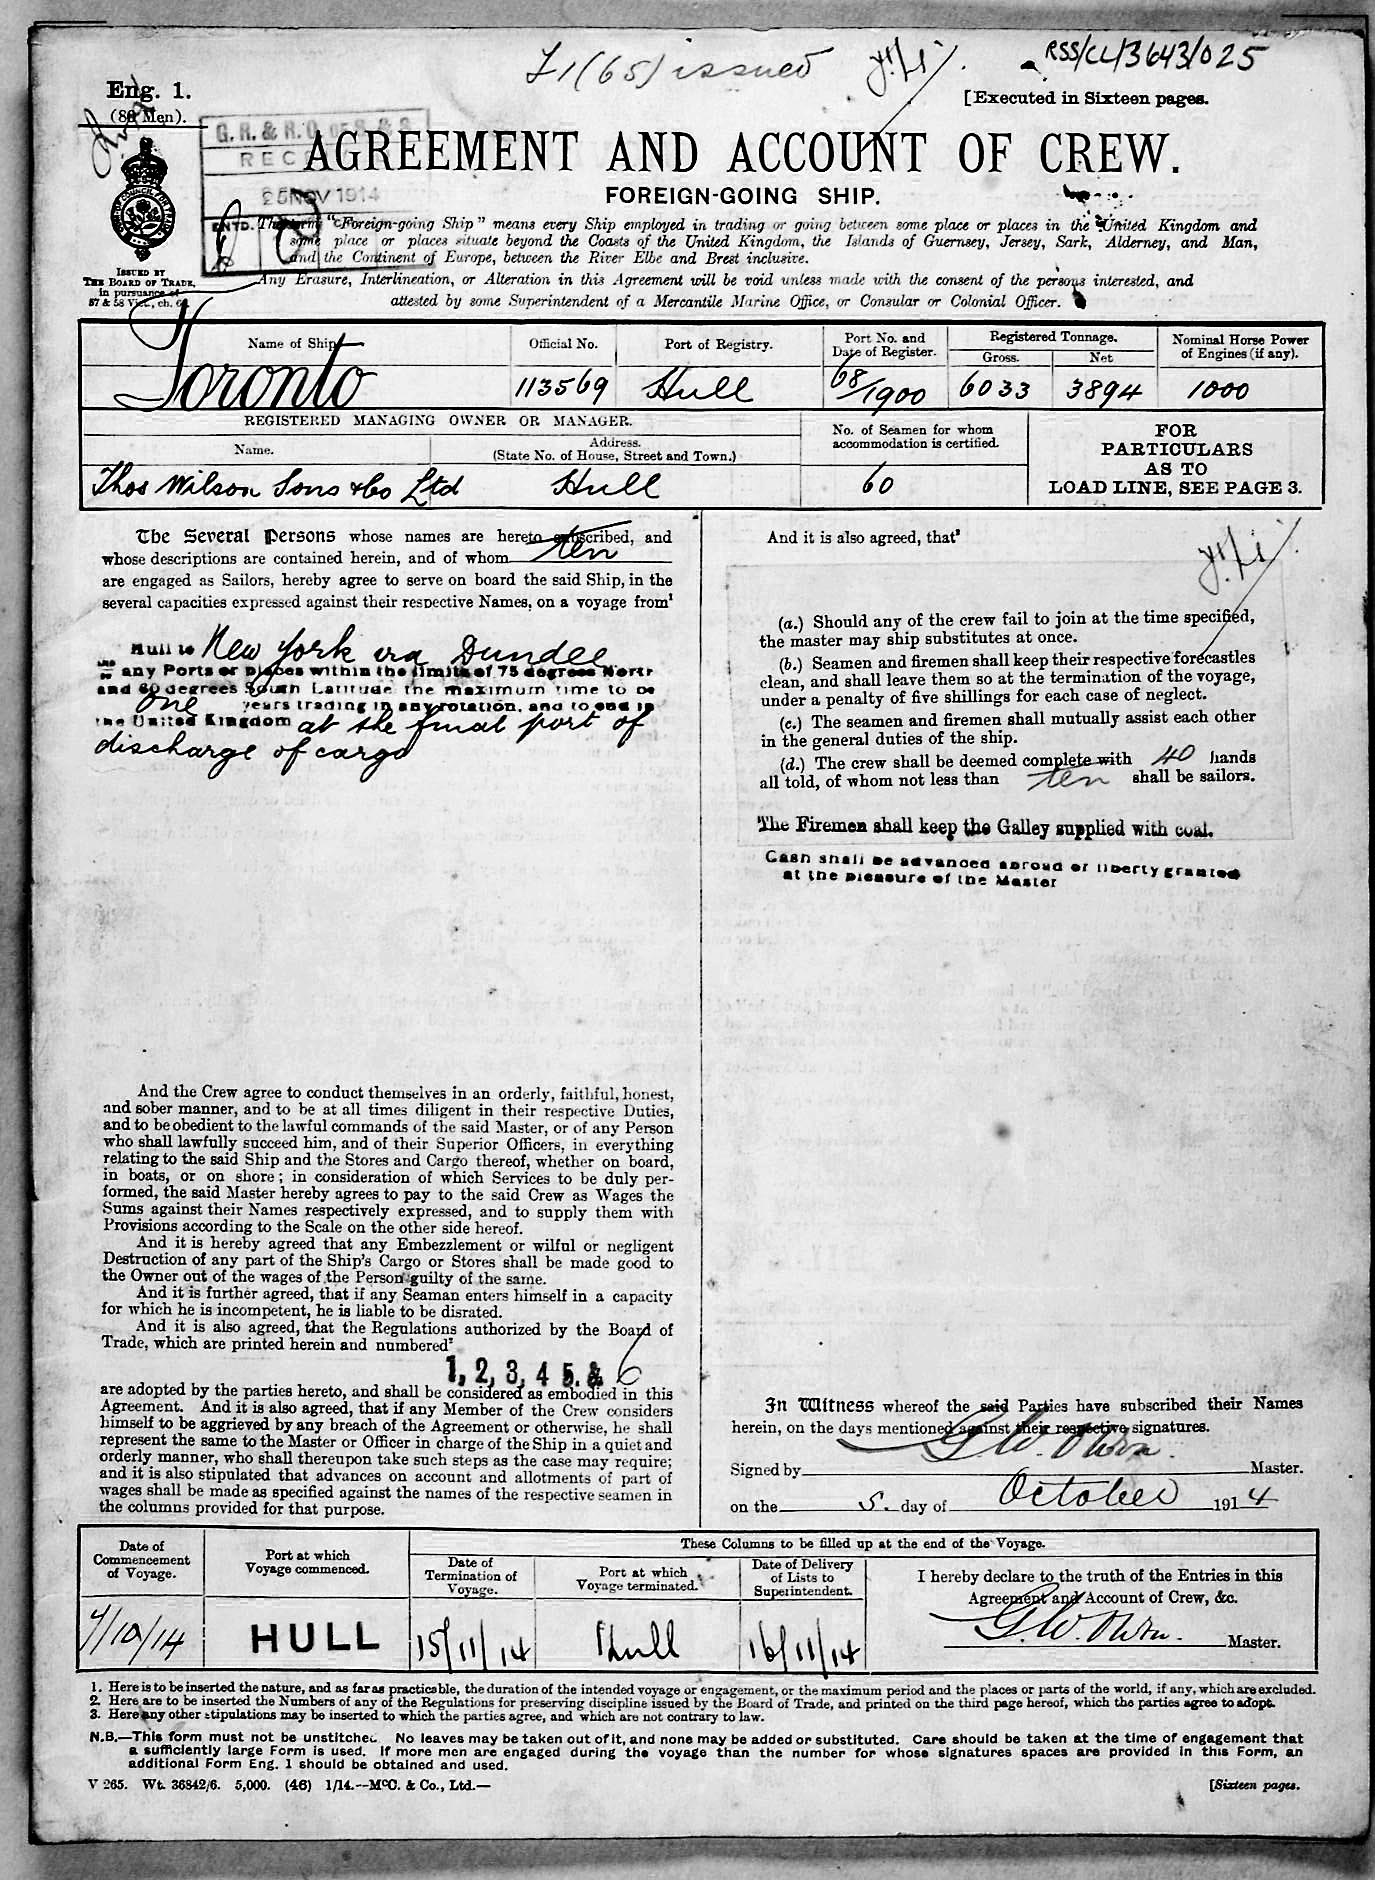 L1(65) issued
RSS/CL/3643/025
Eng. 1.
[Executed in Sixteen pages.
(88 Men).
G. R. & R. O. OF S. & S.
REC
25 NOV 1914
ENTD.
AGREEMENT AND ACCOUNT OF CREW.
FOREIGN-GOING SHIP.
The term "Foreign-going Ship" means every Ship employed in trading or going between some place or places in the United Kingdom and
some place or places situate beyond the Coasts of the United Kingdom, the Islands of Guernsey, Jersey, Sark, Alderney, and Man,
and the Continent of Europe, between the River Elbe and Brest inclusive.
Any Erasure, Interlineation, or Alteration in this Agreement will be void unless made with the consent of the persons interested, and
attested by some Superintendent of a Mercantile Marine Office, or Consular or Colonial Officer.
ISSUED BY
THE BOARD OF TRADE,
in pursuance of
57 & 58 Vict., ch. 60.
Name of Ship.
Official No.
Port of Registry.
Port No. and
Date of Register.
Registered Tonnage.
Gross.
Net
Nominal Horse Power
of Engines (if any).
Toronto
113569
Hull
68/1900
6033
3894
1000
REGISTERED MANAGING OWNER OR MANAGER.
Name.
Address.
(State No. of House, Street and Town.)
No. of Seamen for whom
accommodation is certified.
FOR
PARTICULARS
AS TO
LOAD LINE, SEE PAGE 3.
Thos Wilson Sons & Co Ltd
Hull
60
The Several Persons whose names are hereto subscribed, and
whose descriptions are contained herein, and of whom ten
are engaged as Sailors, hereby agree to serve on board the said Ship, in the
several capacities expressed against their respective Names, on a voyage from¹
Hull to New York via Dundee
any Ports or places within the limits of 75 degrees North
and 60 degrees South Latitude the maximum time to be
One years trading in any rotation, and to end in
the United Kingdom at the final port of
discharge of cargo
And the Crew agree to conduct themselves in an orderly, faithful, honest,
and sober manner, and to be at all times diligent in their respective Duties,
and to be obedient to the lawful commands of the said Master, or of any Person
who shall lawfully succeed him, and of their Superior Officers, in everything
relating to the said Ship and the Stores and Cargo thereof, whether on board,
in boats, or on shore; in consideration of which Services to be duly per-
formed, the said Master hereby agrees to pay to the said Crew as Wages the
Sums against their Names respectively expressed, and to supply them with
Provisions according to the Scale on the other side hereof.
And it is hereby agreed that any Embezzlement or wilful or negligent
Destruction of any part of the Ship's Cargo or Stores shall be made good to
the Owner out of the wages of the Person guilty of the same.
And it is further agreed, that if any Seaman enters himself in a capacity
for which he is incompetent, he is liable to be disrated.
And it is also agreed, that the Regulations authorized by the Board of
Trade, which are printed herein and numbered²
1, 2, 3, 4 5. & 6
are adopted by the parties hereto, and shall be considered as embodied in this
Agreement. And it is also agreed, that if any Member of the Crew considers
himself to be aggrieved by any breach of the Agreement or otherwise, he shall
represent the same to the Master or Officer in charge of the Ship in a quiet and
orderly manner, who shall thereupon take such steps as the case may require;
and it is also stipulated that advances on account and allotments of part of
wages shall be made as specified against the names of the respective seamen in
the columns provided for that purpose.
And it is also agreed, that³
(a.) Should any of the crew fail to join at the time specified,
the master may ship substitutes at once.
(b.) Seamen and firemen shall keep their respective forecastles
clean, and shall leave them so at the termination of the voyage,
under a penalty of five shillings for each case of neglect.
(c.) The seamen and firemen shall mutually assist each other
in the general duties of the ship.
(d.) The crew shall be deemed complete with 40 hands
all told, of whom not less than ten shall be sailors.
The Firemen shall keep the Galley supplied with coal.
Cash shall be advanced abroad or liberty granted
at the pleasure of the Master
In Witness whereof the said Parties have subscribed their Names
herein, on the days mentioned against their respective signatures.
Signed by G. W. Owen. Master.
on the 5. day of October 1914
Date of
Commencement
of Voyage.
Port at which
Voyage commenced.
These Columns to be filled up at the end of the Voyage.
Date of
Termination of
Voyage.
Port at which
Voyage terminated.
Date of Delivery
of Lists to
Superintendent.
I hereby declare to the truth of the Entries in this
Agreement and Account of Crew, &c.
7/10/14
HULL
15/11/14
Hull
16/11/14
G. W. Owen. Master.
1. Here is to be inserted the nature, and as far as practicable, the duration of the intended voyage or engagement, or the maximum period and the places or parts of the world, if any, which are excluded.
2. Here are to be inserted the Numbers of any of the Regulations for preserving discipline issued by the Board of Trade, and printed on the third page hereof, which the parties agree to adopt.
3. Here any other stipulations may be inserted to which the parties agree, and which are not contrary to law.
N.B.—This form must not be unstitched. No leaves may be taken out of it, and none may be added or substituted. Care should be taken at the time of engagement that
a sufficiently large Form is used. If more men are engaged during the voyage than the number for whose signatures spaces are provided in this Form, an
additional Form Eng. 1 should be obtained and used.
V 265. Wt. 36842/6. 5,000. (46) 1/14.—McC. & Co., Ltd.—
[Sixteen pages.